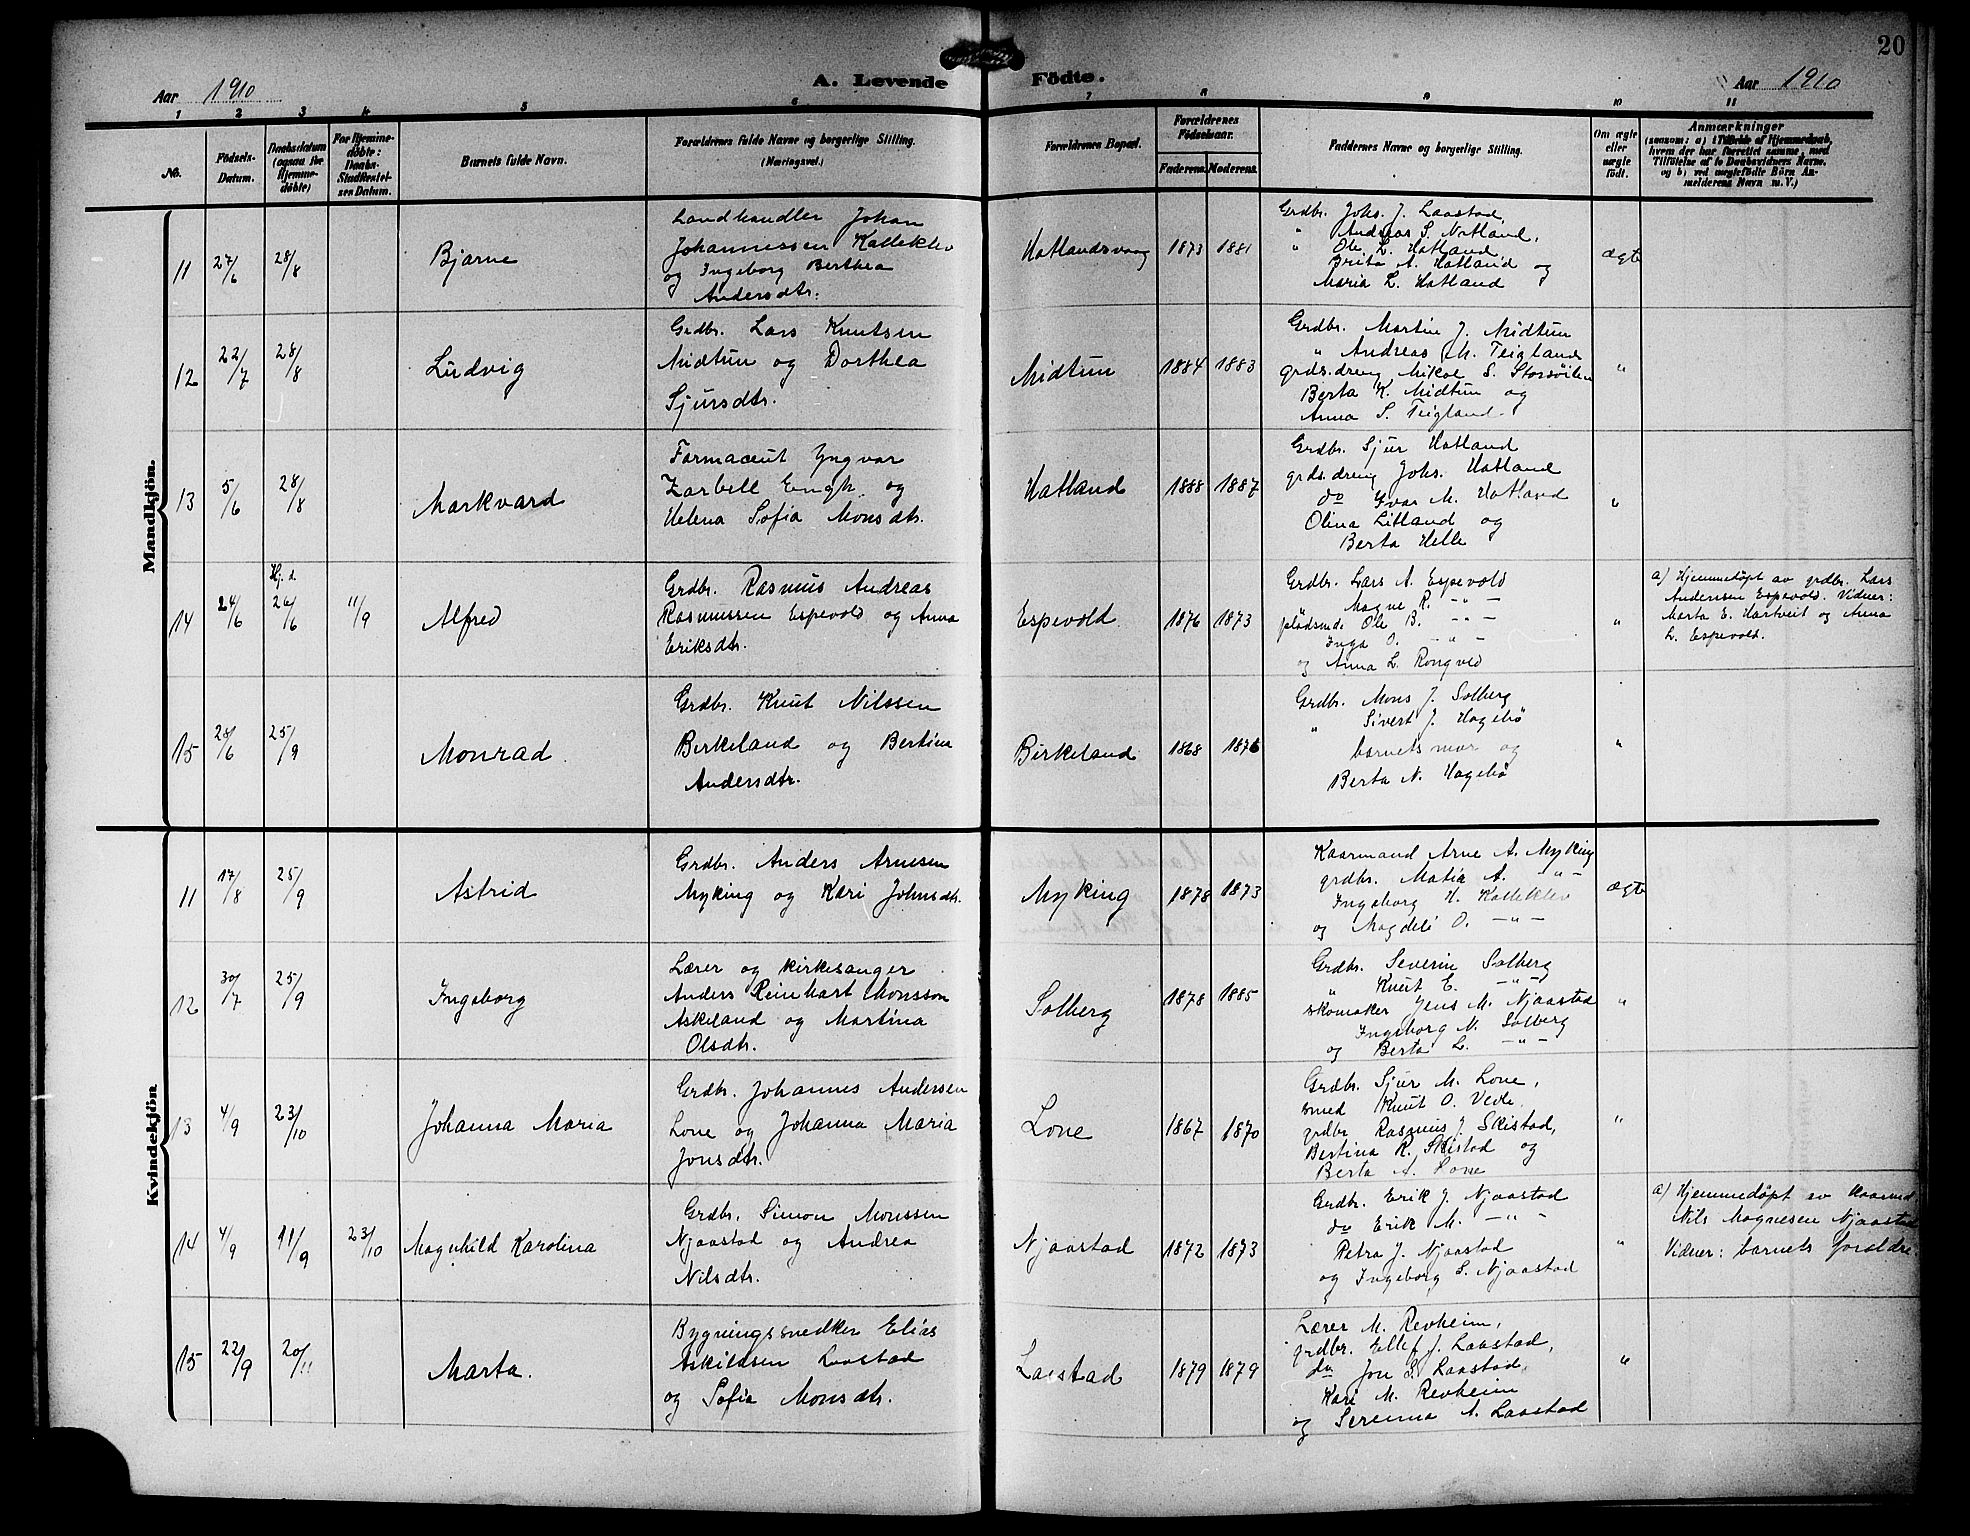 20
Aar 1910
A. Levende Födte.
Aar 1910
1 2 3 4 5 6 7 8 9 10 11
No.
Födsels-Datum.
Daabsdatum (ogsaa for Hjemme-döbte)
For Hjemme-döbte: Daabs-Stadfæstel-sen Datum.
Barnets fulde Navn.
Forældrenes fulde Navne og borgerlige Stilling. (Næringsvei.)
Forældrenes Bopæl.
Forældrenes Födselsaar.
Faderens. Moderens.
Faddernes Navne og borgerlige Stilling.
Om ægte eller uægte födt.
Anmærkninger
(saasom: a) i Tilfælde af Hjemmedaab, hvem der har forrettet samme, med Tilföielse af to Daabsvidners Navne, og b) ved uægtefödte Börn An-melderens Navn m. V.)
Mandkjön.
11 27/6 28/8 Bjarne
Landhandler Johan
Johannessen Kalleklev
og Ingeborg Berthea
Andersdtr.
Hatlandsvaag 1873 1881
Grdbr. Johs. J. Laastad,
" Andreas S. Hatland,
" Ole L. Hatland
Brita A. Hatland og
Maria L. Hatland
ægte
12 22/7 28/8 Ludvig
Grdbr. Lars Knutsen
Midtun og Dorthea
Sjursdtr.
Midtun 1884 1883
Grdbr. Martin J. Midtun
" Andreas M. Teigland
grds.dreng Mikal S. Storsöilen
Berta K. Midtun og
Anna S. Teigland.
"
13 5/6 28/8 Markvard
Farmaceut Yngvar
Zarbell Engh. og
Helena Sofia Monsdtr.
Hatland 1888 1887
Grdbr. Sjur Hatland
grds.dreng Johs. Hatland
do Ivar M. Hatland
Olina Litland og
Berta Helle
"
14 24/6 Hj. d. 26/6 11/9 Alfred
Grdbr. Rasmus Andreas
Rasmussen Espevold og Anna
Eriksdtr.
Espevold. 1876 1873
Grdbr. Lars A. Espevold
Magne R. - " -
pladsmd. Ole B. - " -
Inga O. - " -
og Anna L. Rongved
"
a) Hjemmedöpt av grdbr. Lars
Andersen Espevold. Vidner:
Marta E. Hartveit og Anna
L. Espevold.
15 28/6 25/9 Monrad.
Grdbr. Knut Nilssen
Birkeland og Bertina
Andersdtr.
Birkeland 1868 1876
Grdbr. Mons J. Solberg
" Sivert J. Hagebö
barnets mor og
Berta N. Hagebö
"
Kvindekjön
11 17/8 25/9 Astrid
Grdbr. Anders Arnesen
Myking og Kari Johnsdtr.
Myking 1878 1873
Kaarmand Arne A. Myking
grdbr. Matia A. - " -
Ingeborg H. Kalleklev
og Magdeli O. - " -
ægte
12 30/7 25/9 Ingeborg
Lærer og kirkesanger
Anders Reinhart Monsson
Askeland og Martina
Olsdtr.
Solberg 1878 1885
Grdbr. Severin Solberg
" Knut E. - " -
skomaker Jens M. Njaastad
Ingeborg N. Solberg
og Berta L. - " -
"
13 4/9 23/10 Johanna Maria
Grdbr. Johannes Andersen
Lone og Johanna Maria
Jonsdtr.
Lone 1867 1870
Grdbr. Sjur M. Lone,
smed Knut O. Vede,
grdbr Rasmus J. Skistad,
Bertina R. Skistad og
Berta A. Lone
"
14 4/9 11/9 23/10 Magnhild Karolina
Grdbr. Simon Monssen
Njaastad og Andrea
Nilsdtr.
Njaastad 1872 1873
Grdbr. Erik J. Njaastad
do Erik M. - " -
Petra J. Njaastad
og Ingeborg S. Njaastad
"
a) Hjemmedöpt av Kaarmd.
Nils Magnesen Njaastad
Vidner: barnets foraldre
15 22/9 20/11 Marta.
Bygningssnedker Elias
Askildsen Laastad
og Sofia Monsdtr.
Laastad 1879 1879
Lærer M. Revheim,
grdbr. Ellef J. Laastad,
do Jon S. Laastad,
Kari M. Revheim
og Serenna A. Laastad
"